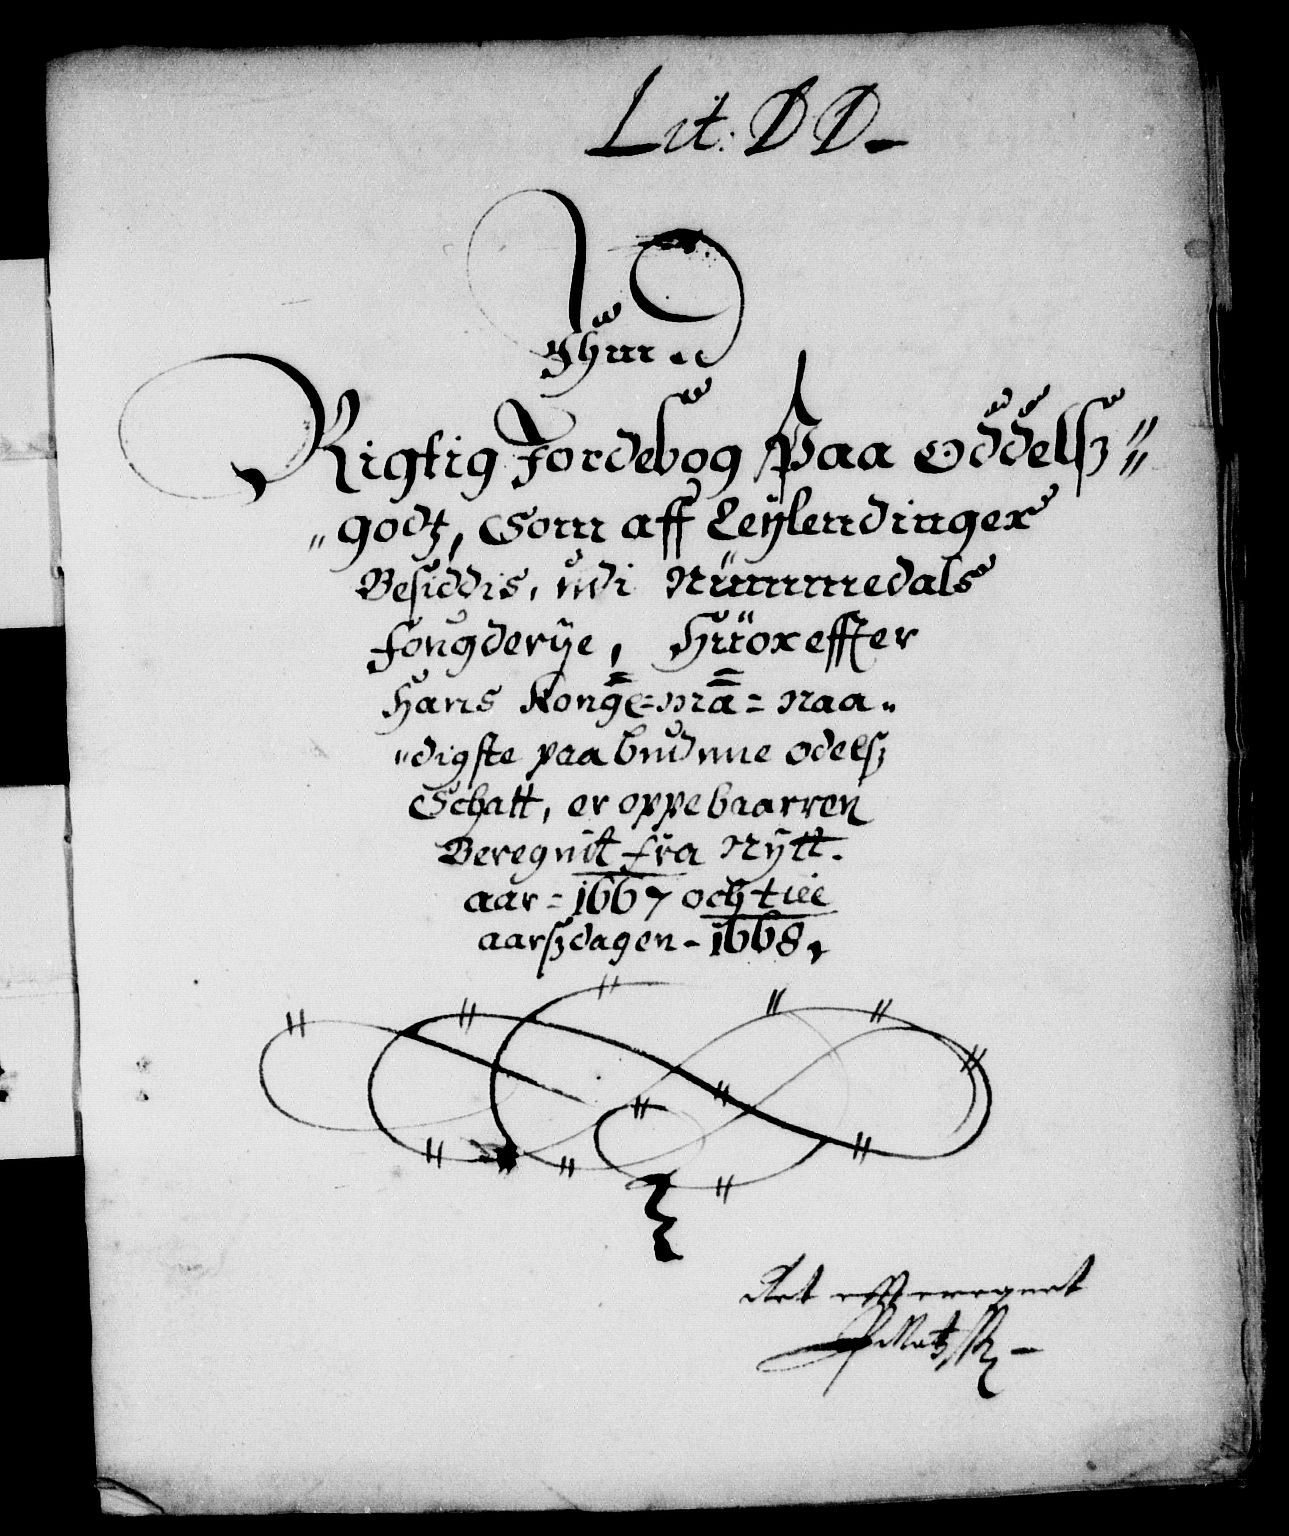 Lit: DD
Ehn
Rigtig Jordebog Paa Oddelsz=
godtz, Som aff Leÿlendinger
Besiddis, udi Nummedals
fougderÿe, Huoreffter
Hans Konge: Mā: Naa„
„digste paabudne odelsz
Schatt, er oppebaarren
Beregnit fra Nÿtt
aar = 1667 och till
aarszdagen - 1668,
Ret efferegnet